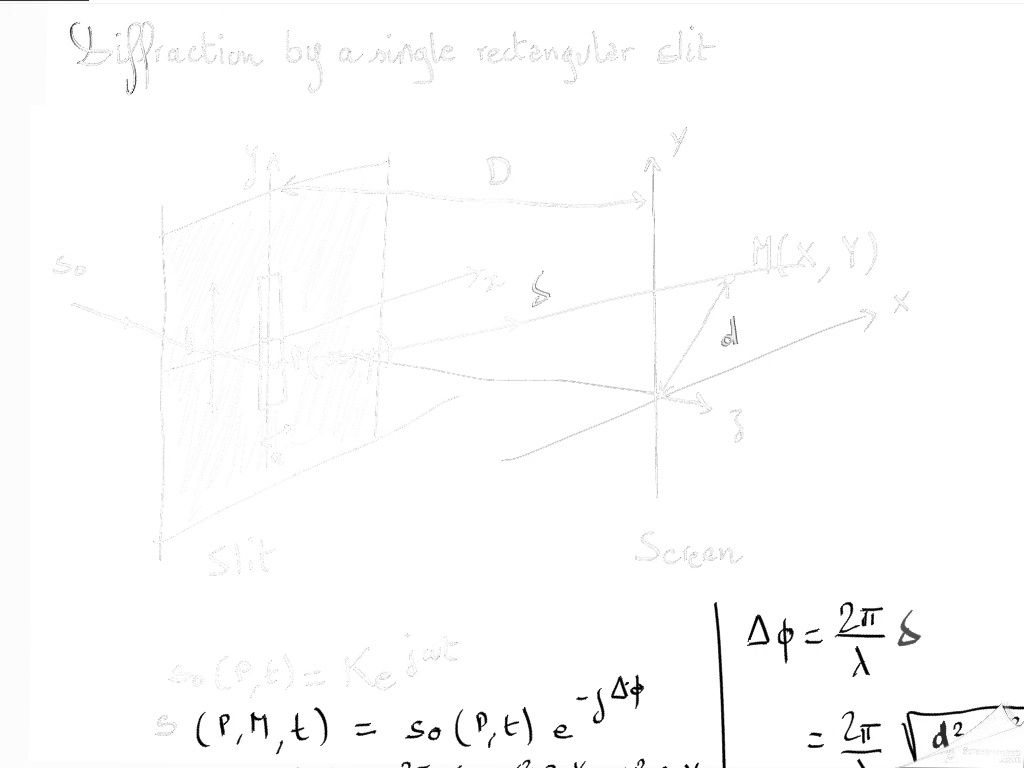 Diffraction by a single rectangular slit
y
Y
D
M(X, Y)
s₀
x
δ
X
d
b
P(x,y)
z
a
Slit
Screen
s₀(P,t) = K e^{jωt}
s (P,M,t) = s₀(P,t) e^{-jΔϕ}
Δϕ = 2π/λ δ
= 2π/λ √d²